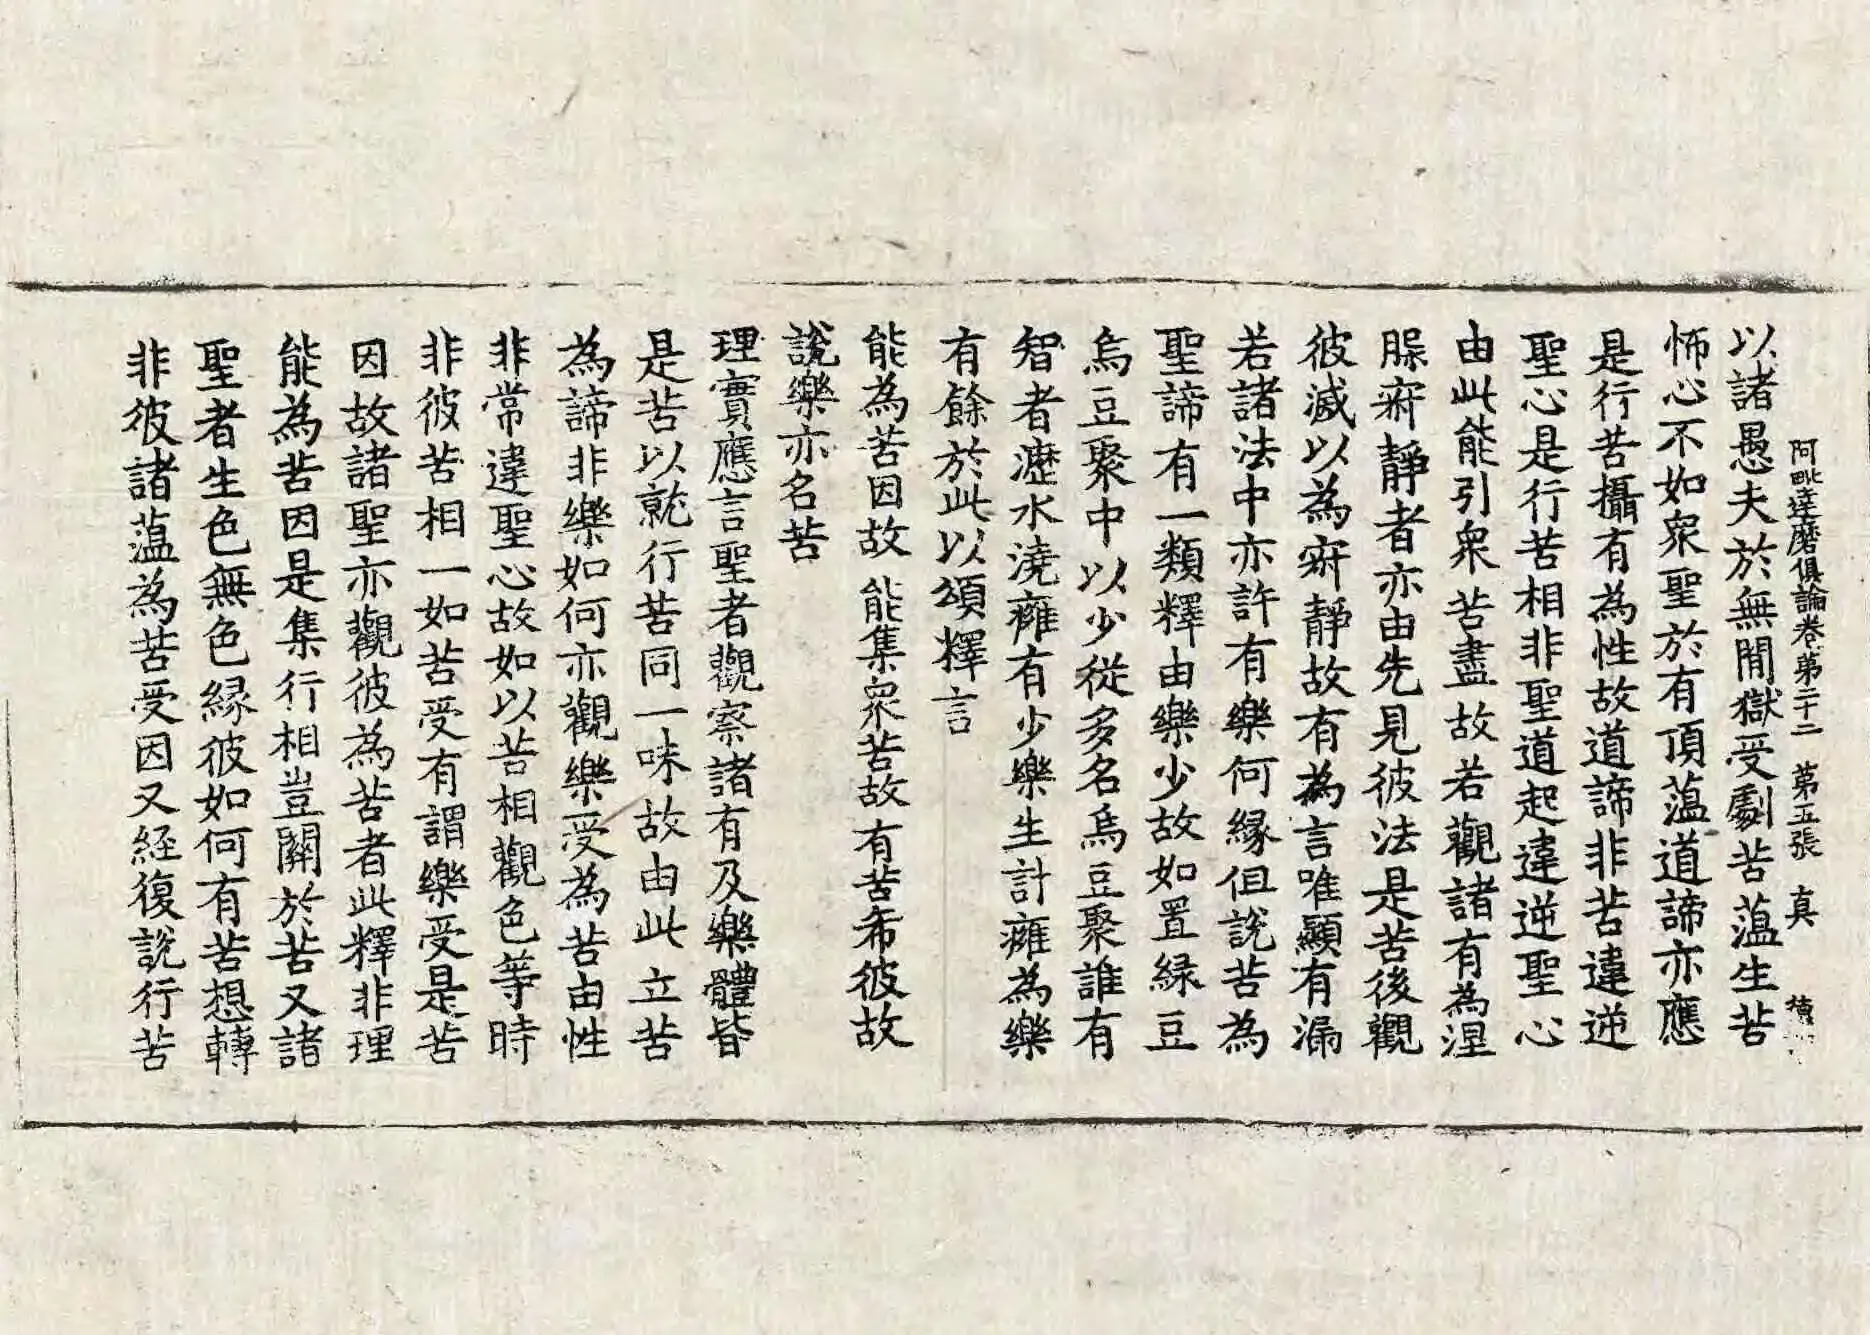 阿毗達磨俱論卷第二十二 第五張 真
以諸愚夫於無閒獄受劇苦蕰生苦
怖心不如衆聖於有頂蕰道諦亦應
是行苦攝有為性故道諦非苦違逆
聖心是行苦相非聖道起違逆聖心
由此能引衆苦盡故若觀諸有為涅
脲㝛靜者亦由先見彼法是苦後觀
彼滅以為㝛靜故有為言唯顯有漏
若諸法中亦許有樂何縁但說苦為
聖諦有一類釋由樂少故如置緑豆
烏豆聚中以少從多名烏豆聚誰有
智者瀝水澆癰有少樂生計癰為樂
有餘於此以頌釋言
能為苦因故 能集衆苦故 有苦希彼故
說樂亦名苦
理實應言聖者觀察諸有及樂體皆
是苦以就行苦同一味故由此立苦
為諦非樂如何亦觀樂受為苦由性
非常違聖心故如以苦相觀色等時
非彼苦相一如苦受有謂樂受是苦
因故諸聖亦觀彼為苦者此釋非理
能為苦因是集行相豈關於苦又諸
聖者生色無色縁彼如何有苦想轉
非彼諸蕰為苦受因又経復說行苦